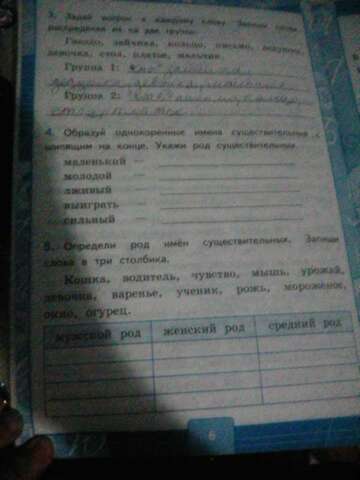 3. Задай вопрос к каждому слову. Запиши слова,
распределяя их на две группы.
Гнездо, зайчиха, кольцо, письмо, ведущая,
девочка, стол, платье, мальчик.
Группа 1: кто?
Группа 2:
4. Образуй однокоренные имена существительные с
шипящим на конце. Укажи род существительных.
маленький —
молодой —
лживый —
выиграть —
сильный —
5. Определи род имён существительных. Запиши
слова в три столбика.
Кошка, водитель, чувство, мышь, урожай,
девочка, варенье, ученик, рожь, мороженое,
окно, огурец.
мужской род женский род средний род
6